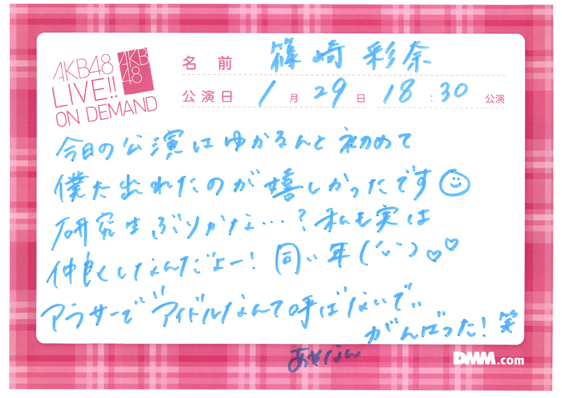 AKB48
LIVE!!
ON DEMAND
AKB
48
名前 篠崎 彩奈
公演日 1月29日 18:30 公演
今日の公演はゆかるんと初めて
僕太出れたのが嬉しかったです
研究生ぶりかな…?私も実は
仲良しなんだよー!同い年(^^)♡♡
アラサーでアイドルなんて呼ばないで…
がんばった!笑
あやなん
DMM.com